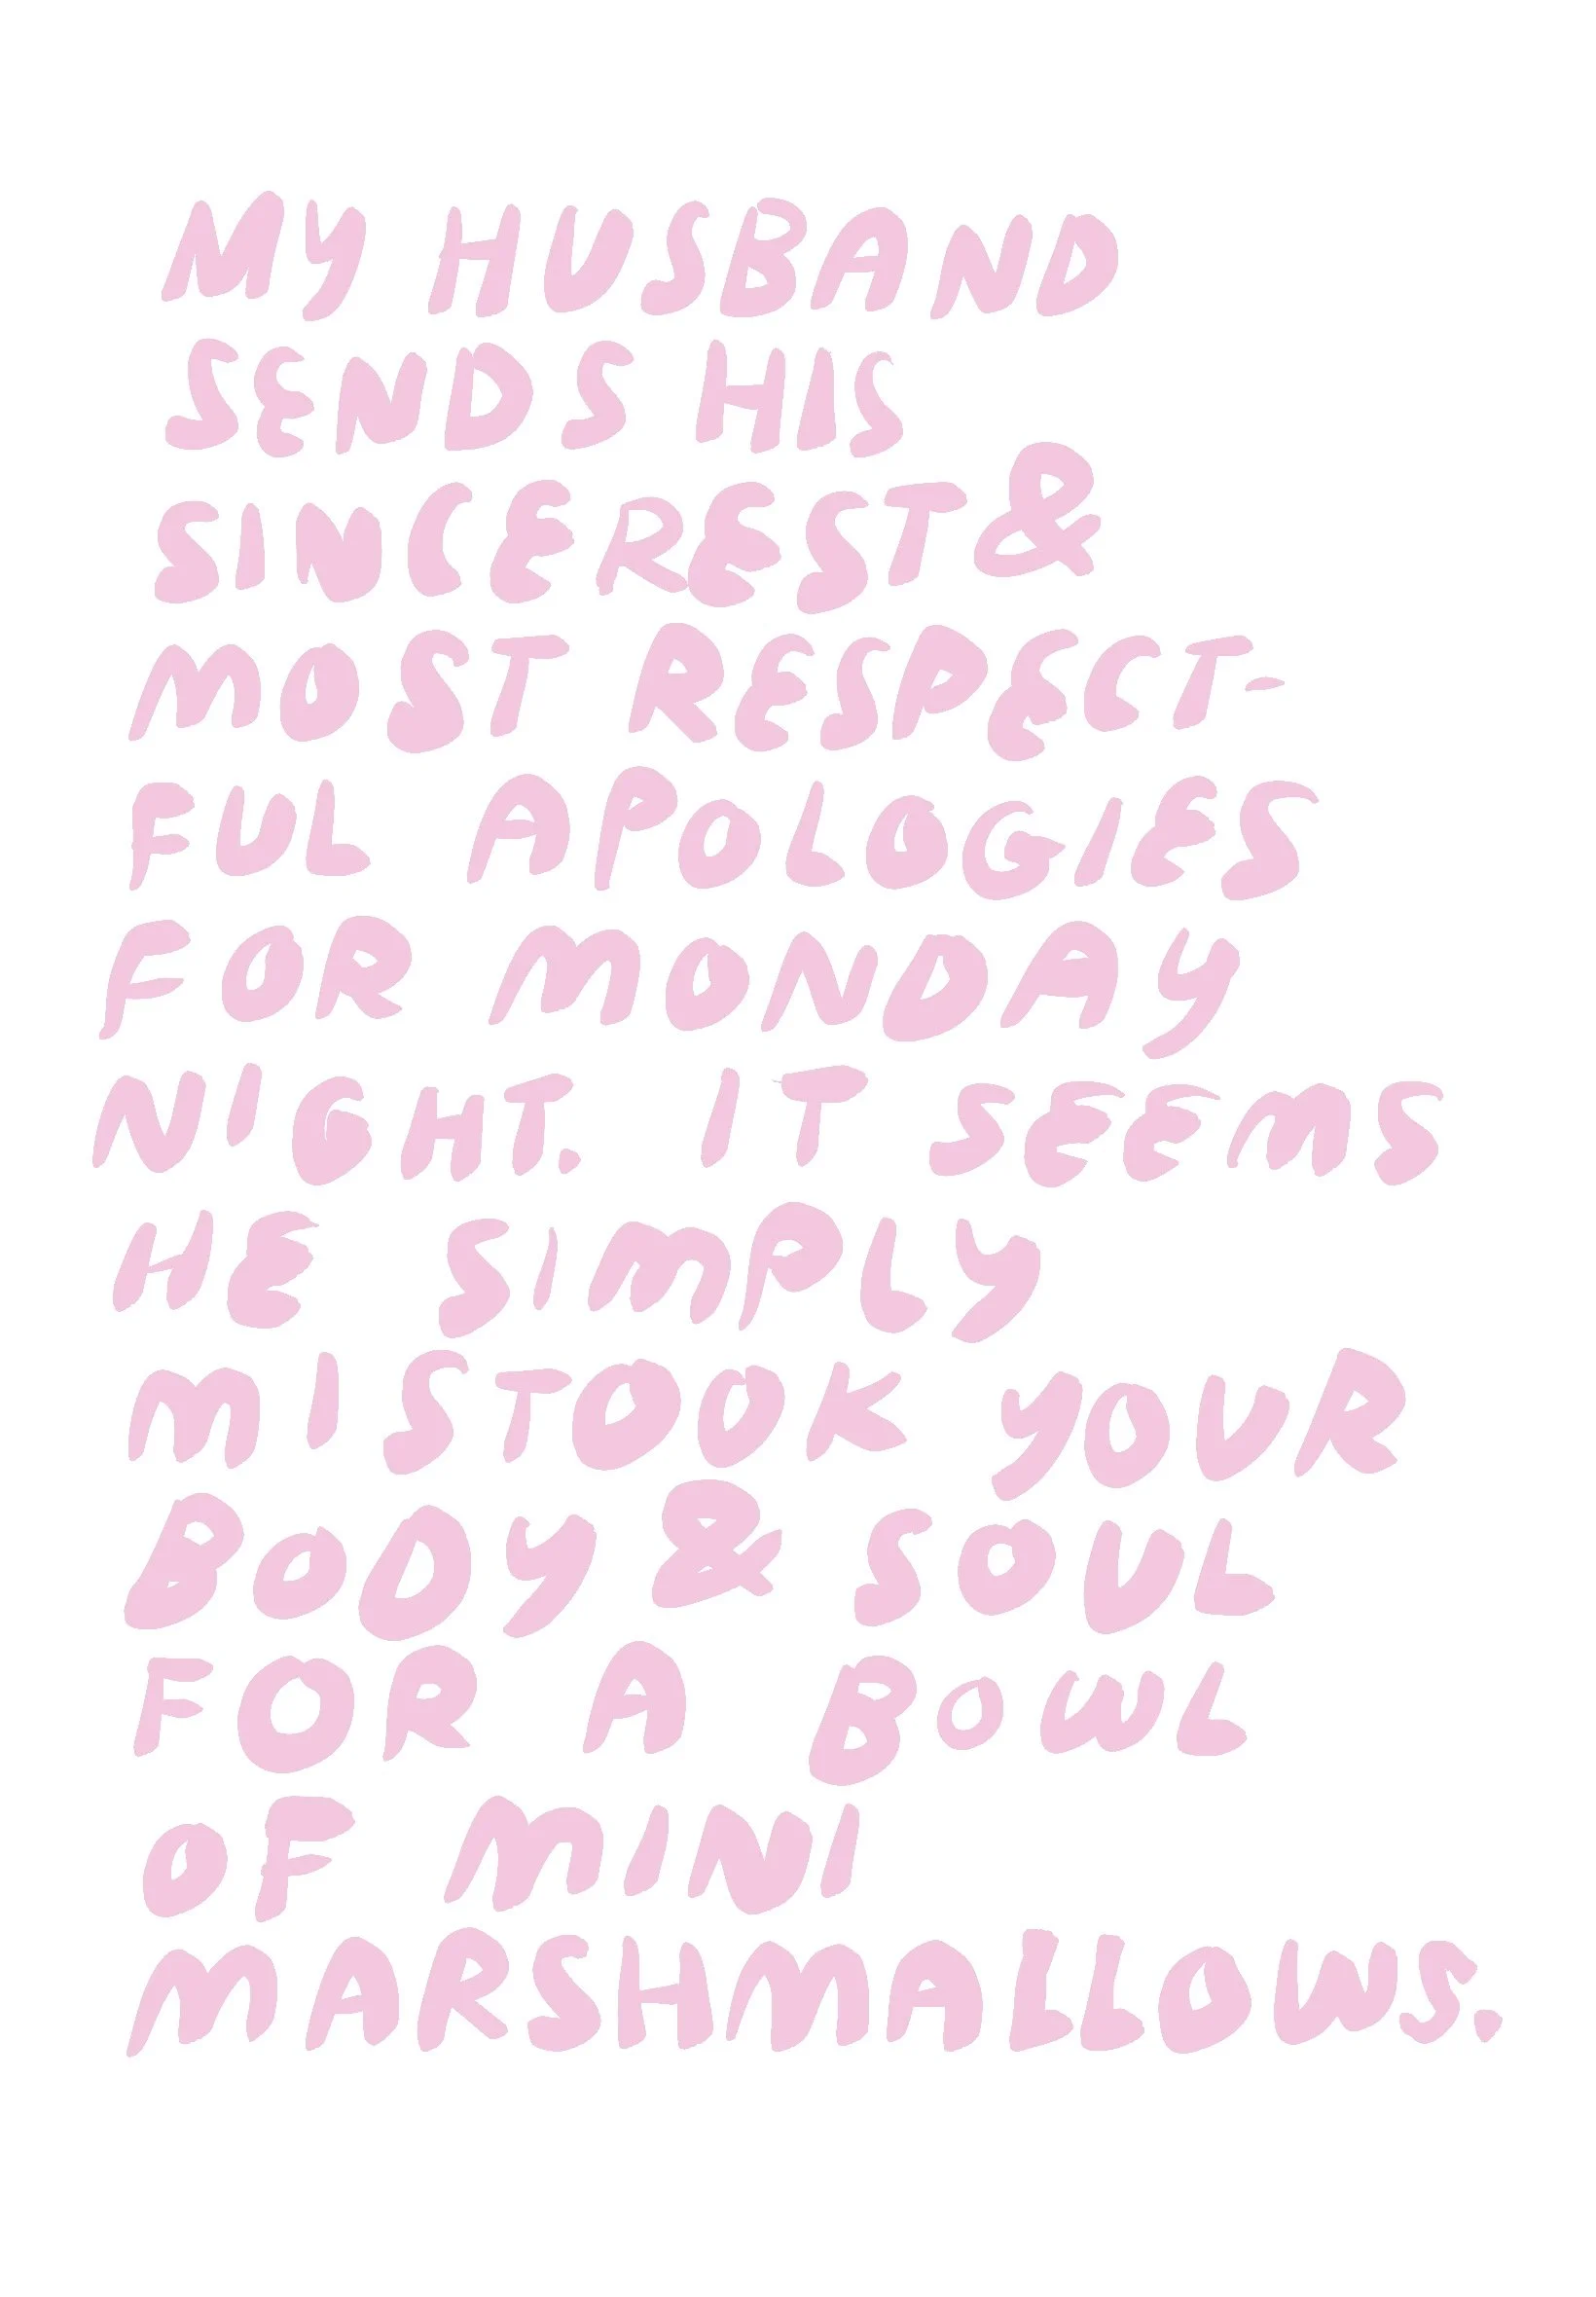 MY HUSBAND
SENDS HIS
SINCEREST &
MOST RESPECT-
FUL APOLOGIES
FOR MONDAY
NIGHT. IT SEEMS
HE SIMPLY
MISTOOK YOUR
BODY & SOUL
FOR A BOWL
OF MINI
MARSHMALLOWS.